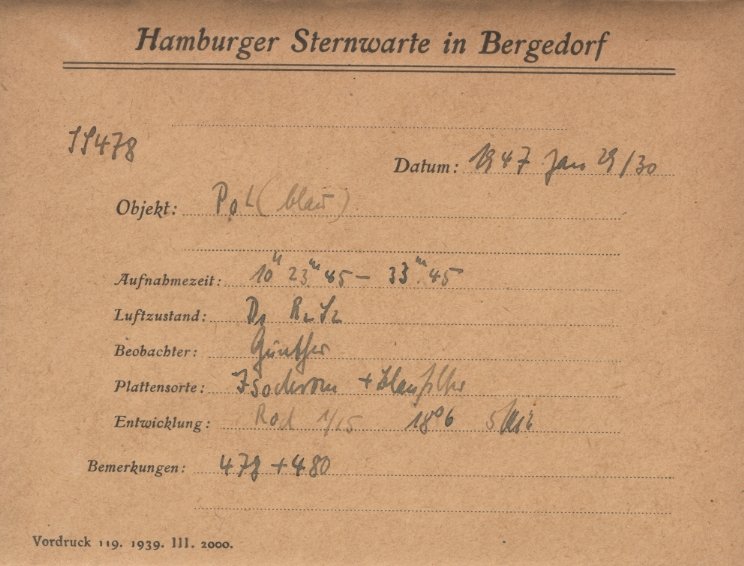 Hamburger Sternwarte in Bergedorf
SS478
Datum: 1947 Jan 29/30
Objekt: Pol (blau)
Aufnahmezeit: 10ʰ 23ᵐ.45 — 33ᵐ.45
Luftzustand: D2 R2 S2
Beobachter: Günther
Plattensorte: Isochrom + Blaufilter
Entwicklung: Rod 1/25 18°6 5 Min
Bemerkungen: 478 + 480
Vordruck 119. 1939. III. 2000.